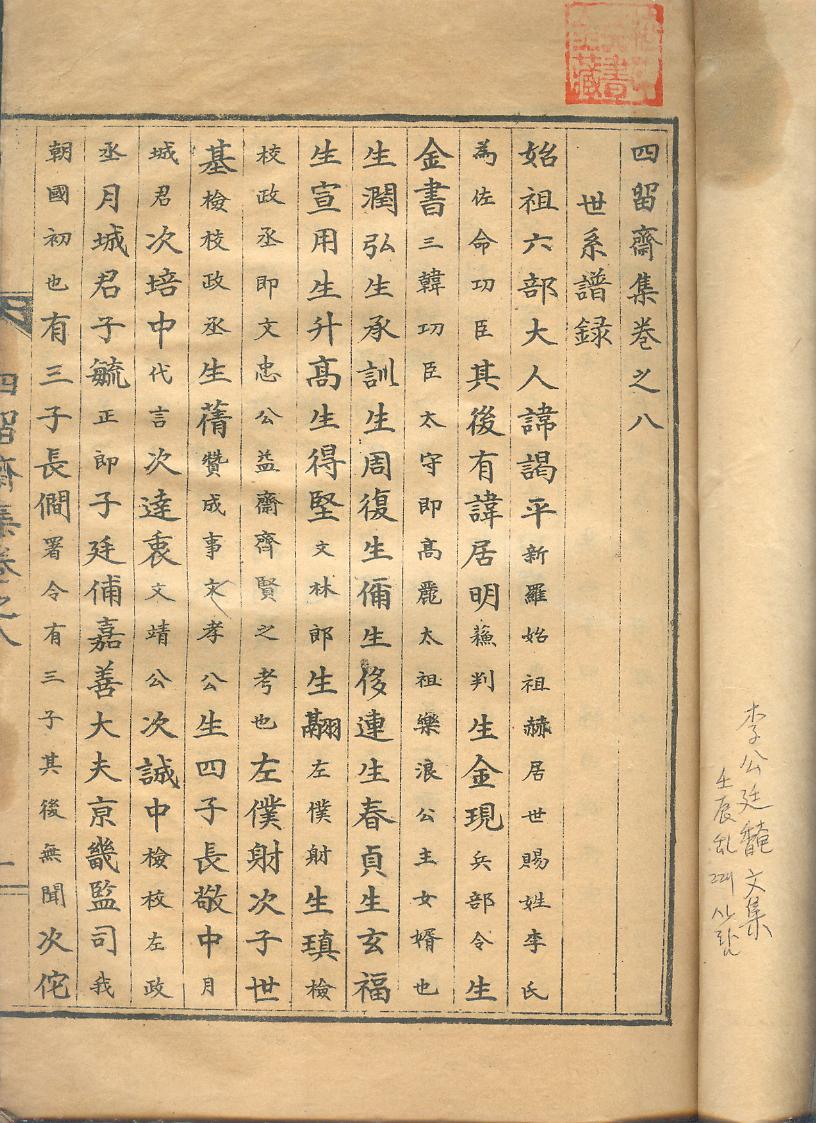 四留齋集卷之八
世系譜録
始祖六部大人諱謁平新羅始祖赫居世賜姓李氏
為佐命功臣其後有諱居明蘓判生金現兵部令生
金書三韓功臣太守即高麗太祖樂浪公主女婿也
生潤弘生承訓生周復生偁生侈連生春貞生玄福
生宣用生升高生得堅文林郎生翮左僕射生瑱檢
校政丞即文忠公益齋齊賢之考也左僕射次子世
基檢校政丞生蒨贊成事文孝公生四子長敬中月
城君次培中代言次達衷文靖公次誠中檢校左政
丞月城君子毓正郎子廷俌嘉善大夫京畿監司我
朝國初也有三子長僩署令有三子其後無聞次佗
四留齋集卷之八
李公廷馣文集
壬辰乱 때 사람
藏書